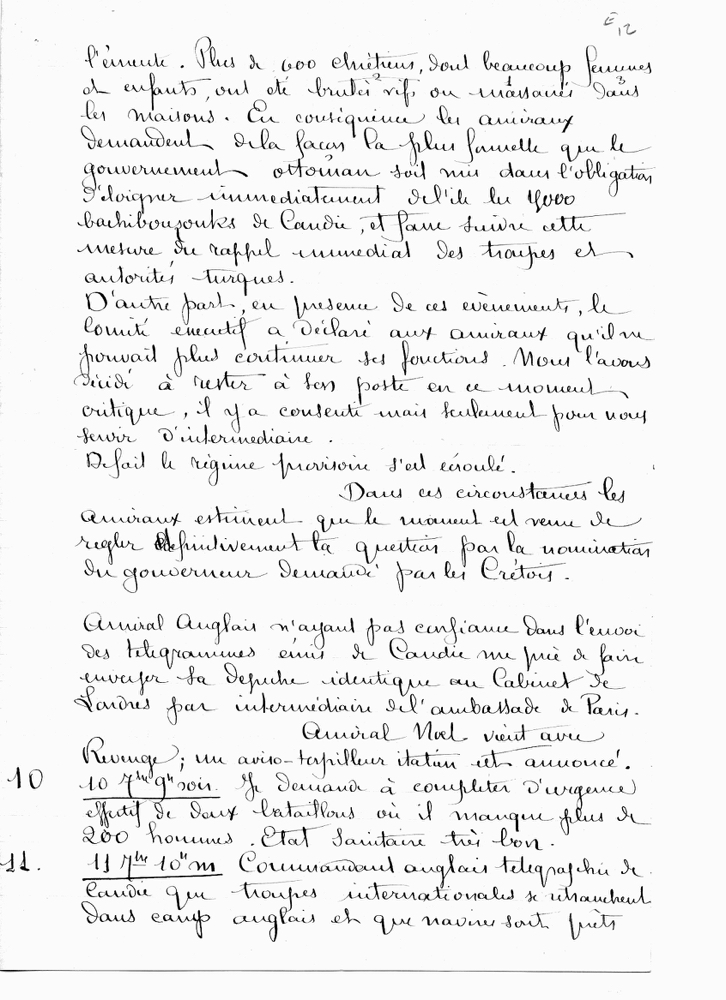 E 12
l'émeute. Plus de 600 chrétiens, dont beaucoup femmes
et enfants, ont été brulés 2 vifs ou massacrés 1 dans 3
les maisons. En conséquence les amiraux
demandent de la façon la plus formelle que le
gouvernement ottoman soit mis dans l'obligation
d'éloigner immediatement de l'ile les 4000
bachibouzouks de Candie, et faire suivre cette
mesure du rappel immediat des troupes et
autorités turques.
D'autre part, en presence de ces evènements, le
Comité executif a déclaré aux amiraux qu'il ne
pouvait plus continuer ses fonctions. Nous l'avons
décidé à rester à son poste en ce moment
critique, il y a consenti mais seulement pour nous
servir d'intermediaire.
De fait le régime provisoire s'est écroulé.
Dans ces circonstances les
amiraux estiment que le moment est venu de
regler definitivement la question par la nomination
du gouverneur demandé par les Crétois.
Amiral Anglais n'ayant pas confiance dans l'envoi
des telegrammes émis de Candie me prie de faire
envoyer sa depeche identique au Cabinet de
Londres par intermédiaire de l'ambassade de Paris.
Amiral Noel vient avec
Revenge; un aviso-torpilleur italien est annoncé.
10
10 7bre 9h soir. Je demande à completer d'urgence
effectif de deux bataillons où il manque plus de
200 hommes. Etat Sanitaire très bon.
11.
11 7bre 10h m Commandant anglais telegraphie de
Candie que troupes internationales se retranchent
dans camp anglais et que navires sont prêts